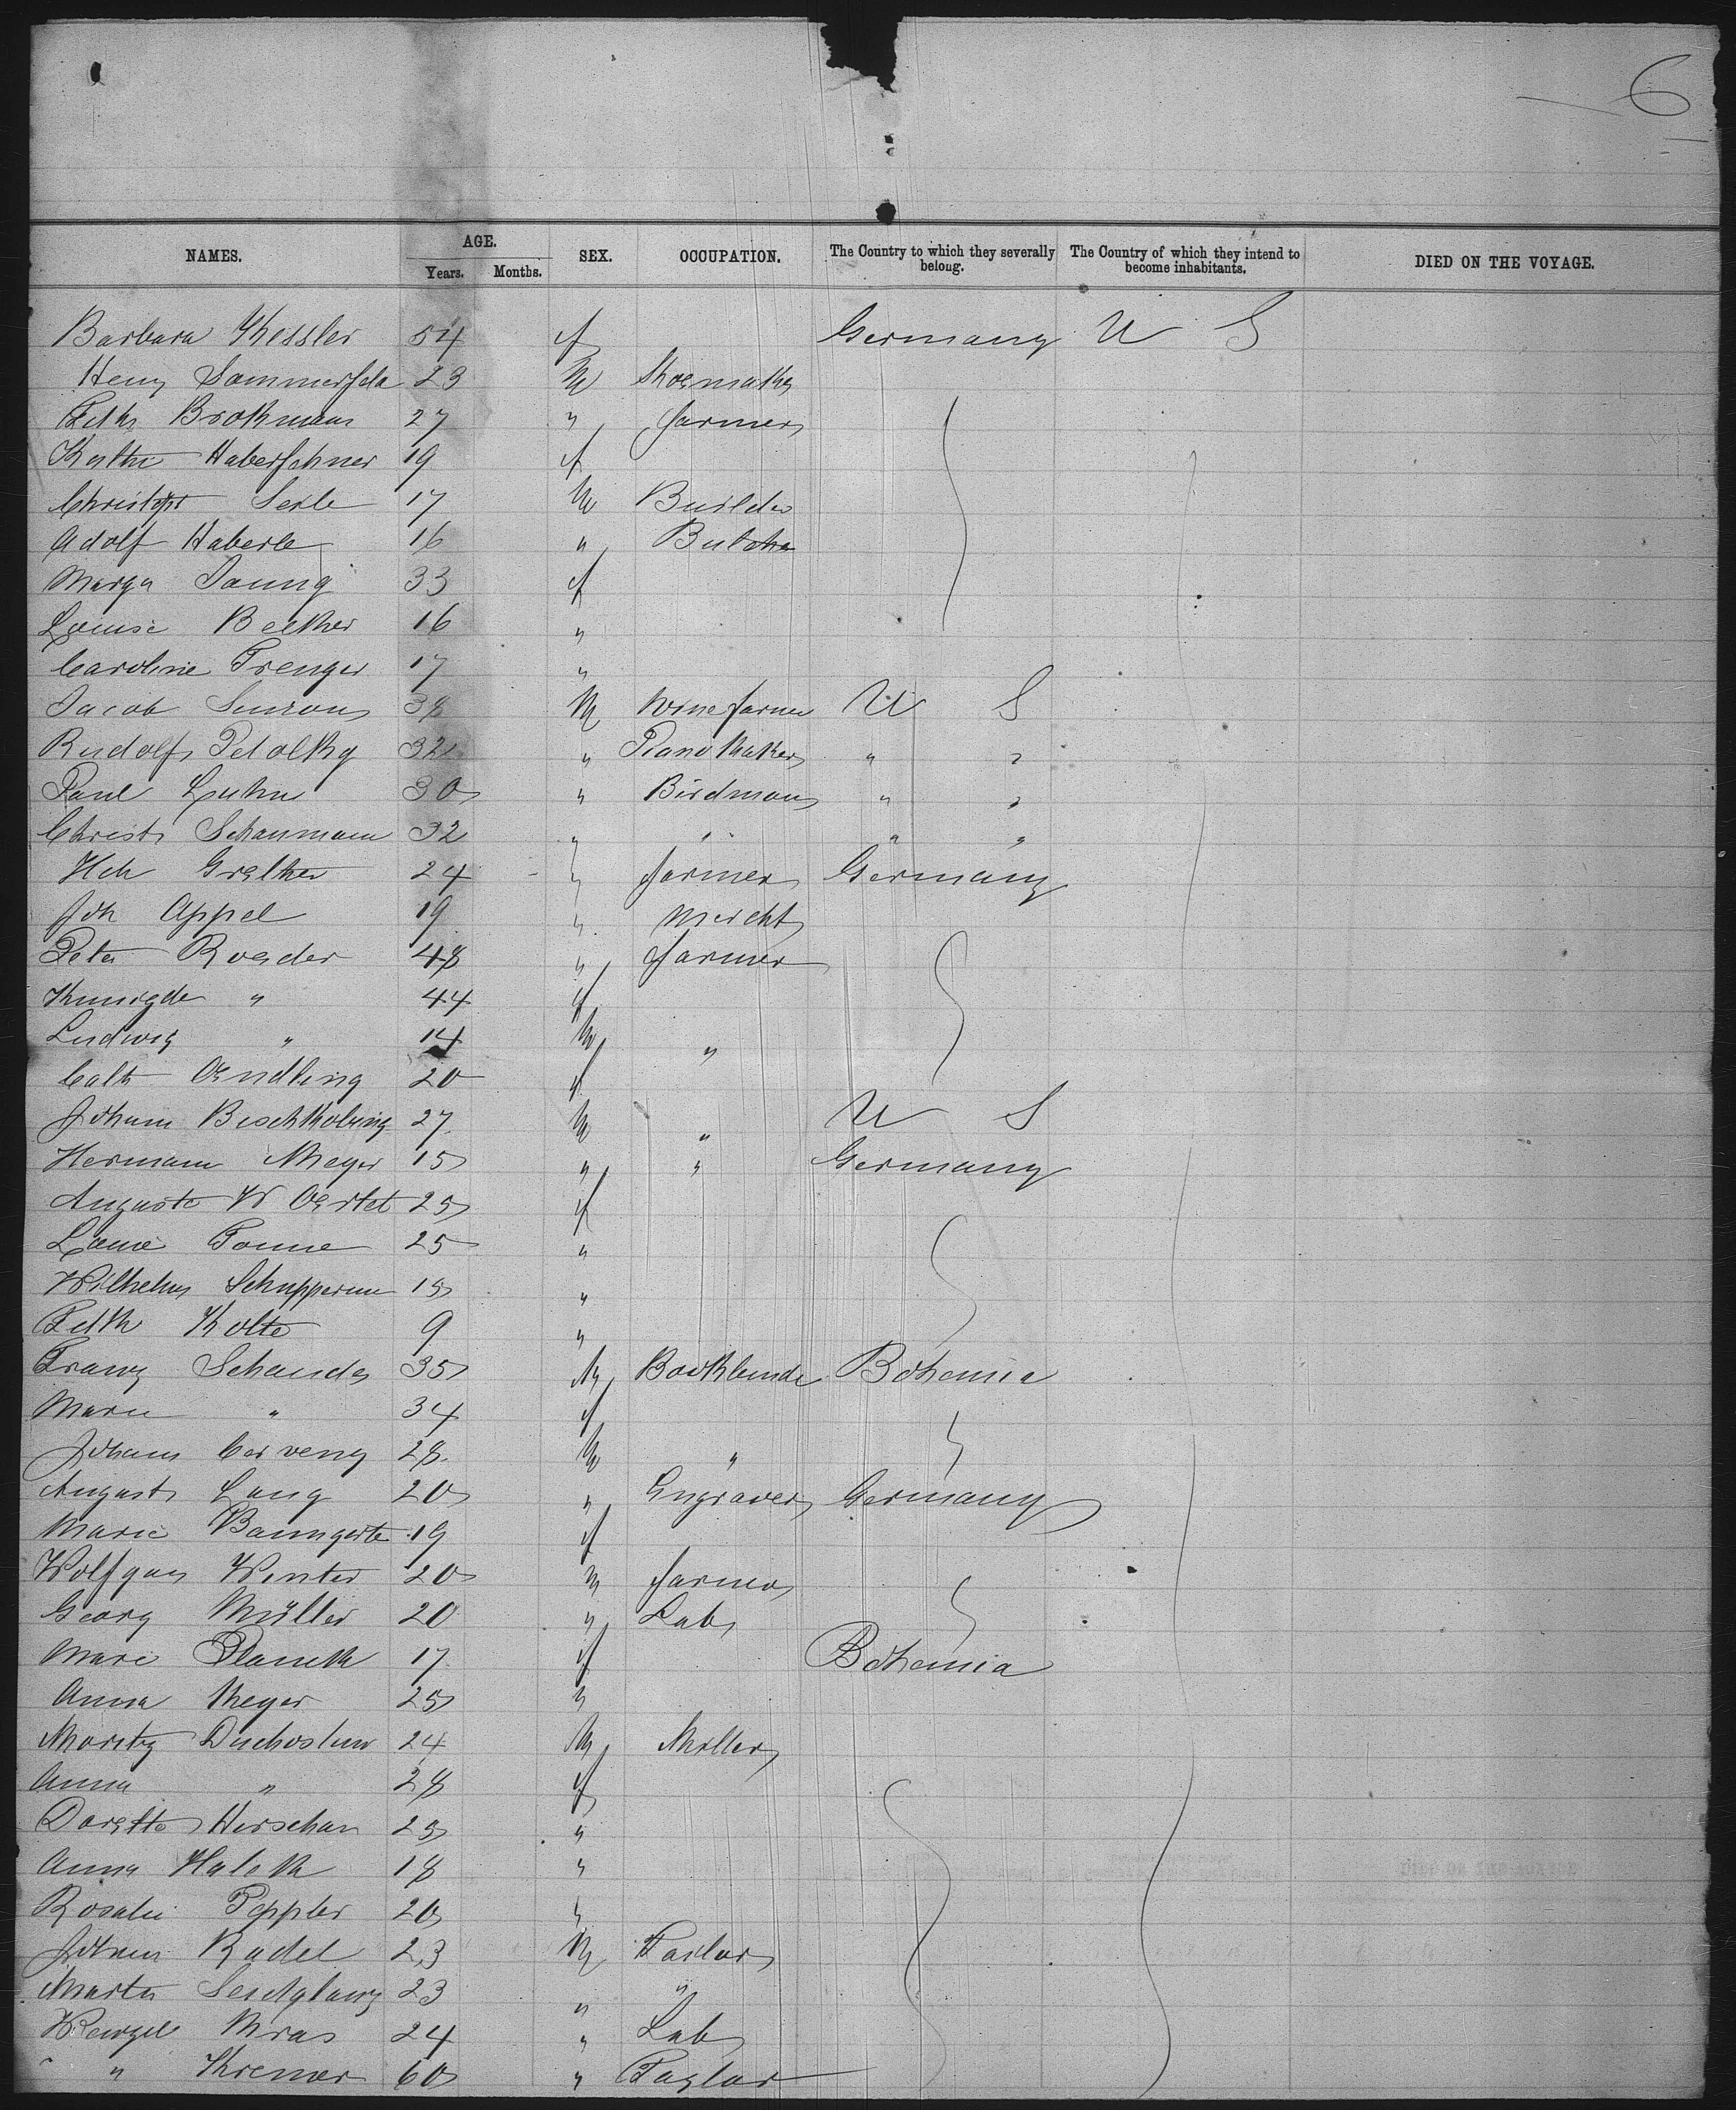 6
NAMES. AGE. SEX. OCCUPATION. The Country to which they severally belong. The Country of which they intend to become inhabitants. DIED ON THE VOYAGE.
Years. Months.
Barbara Kessler 54 f Germany U S
Henry 23 M Shoemaker
Brokmann 27 " farmer
Kathe 19 f
Christoph 17 M Builder
Adolf Haberle 16 " Butcher
Marga 33 f
Louise Becker 16 "
Caroline Trenger 17 "
Jacob 38 M Wine farmer U S
Rudolf Petolky 32 " Piano Maker " "
Paul Luhn 30 " Birdman " "
Christ Schaumann 32 " " " "
Hch 24 " farmer Germany
Joh Appel 19 " Mercht
Peter Roeder 48 " farmer
Kunigde " 44 f
Ludwig " 14 M "
Cath Oendling 20 f
Johann 27 M " U S
Hermann Meyer 15 " " Germany
Auguste W Oertel 25 f
Louise Tonne 25 "
Wilhelm 15 "
Kolte 9 "
Franz Schanda 35 M Bookbinde Bohemia
Marie " 34 f
Johann Cerveny 28 M "
August Lang 20 " Engraver Germany
Marie Baumgarte 19 f
Wolfgan Winter 20 M farmer
Georg Müller 20 " Lab
Mari 17 f Bohemia
Anna Meyer 25 "
Moritz Duchoslav 24 M Miller
Anna " 28 f
Dorette Herschan 25 "
Anna Halek 18 "
Rosalie Peppler 20 "
Johann Radel 23 M Tailor
Martin 23 " "
Wenzel Mras 24 " Lab
" Kremer 60 " Taylor